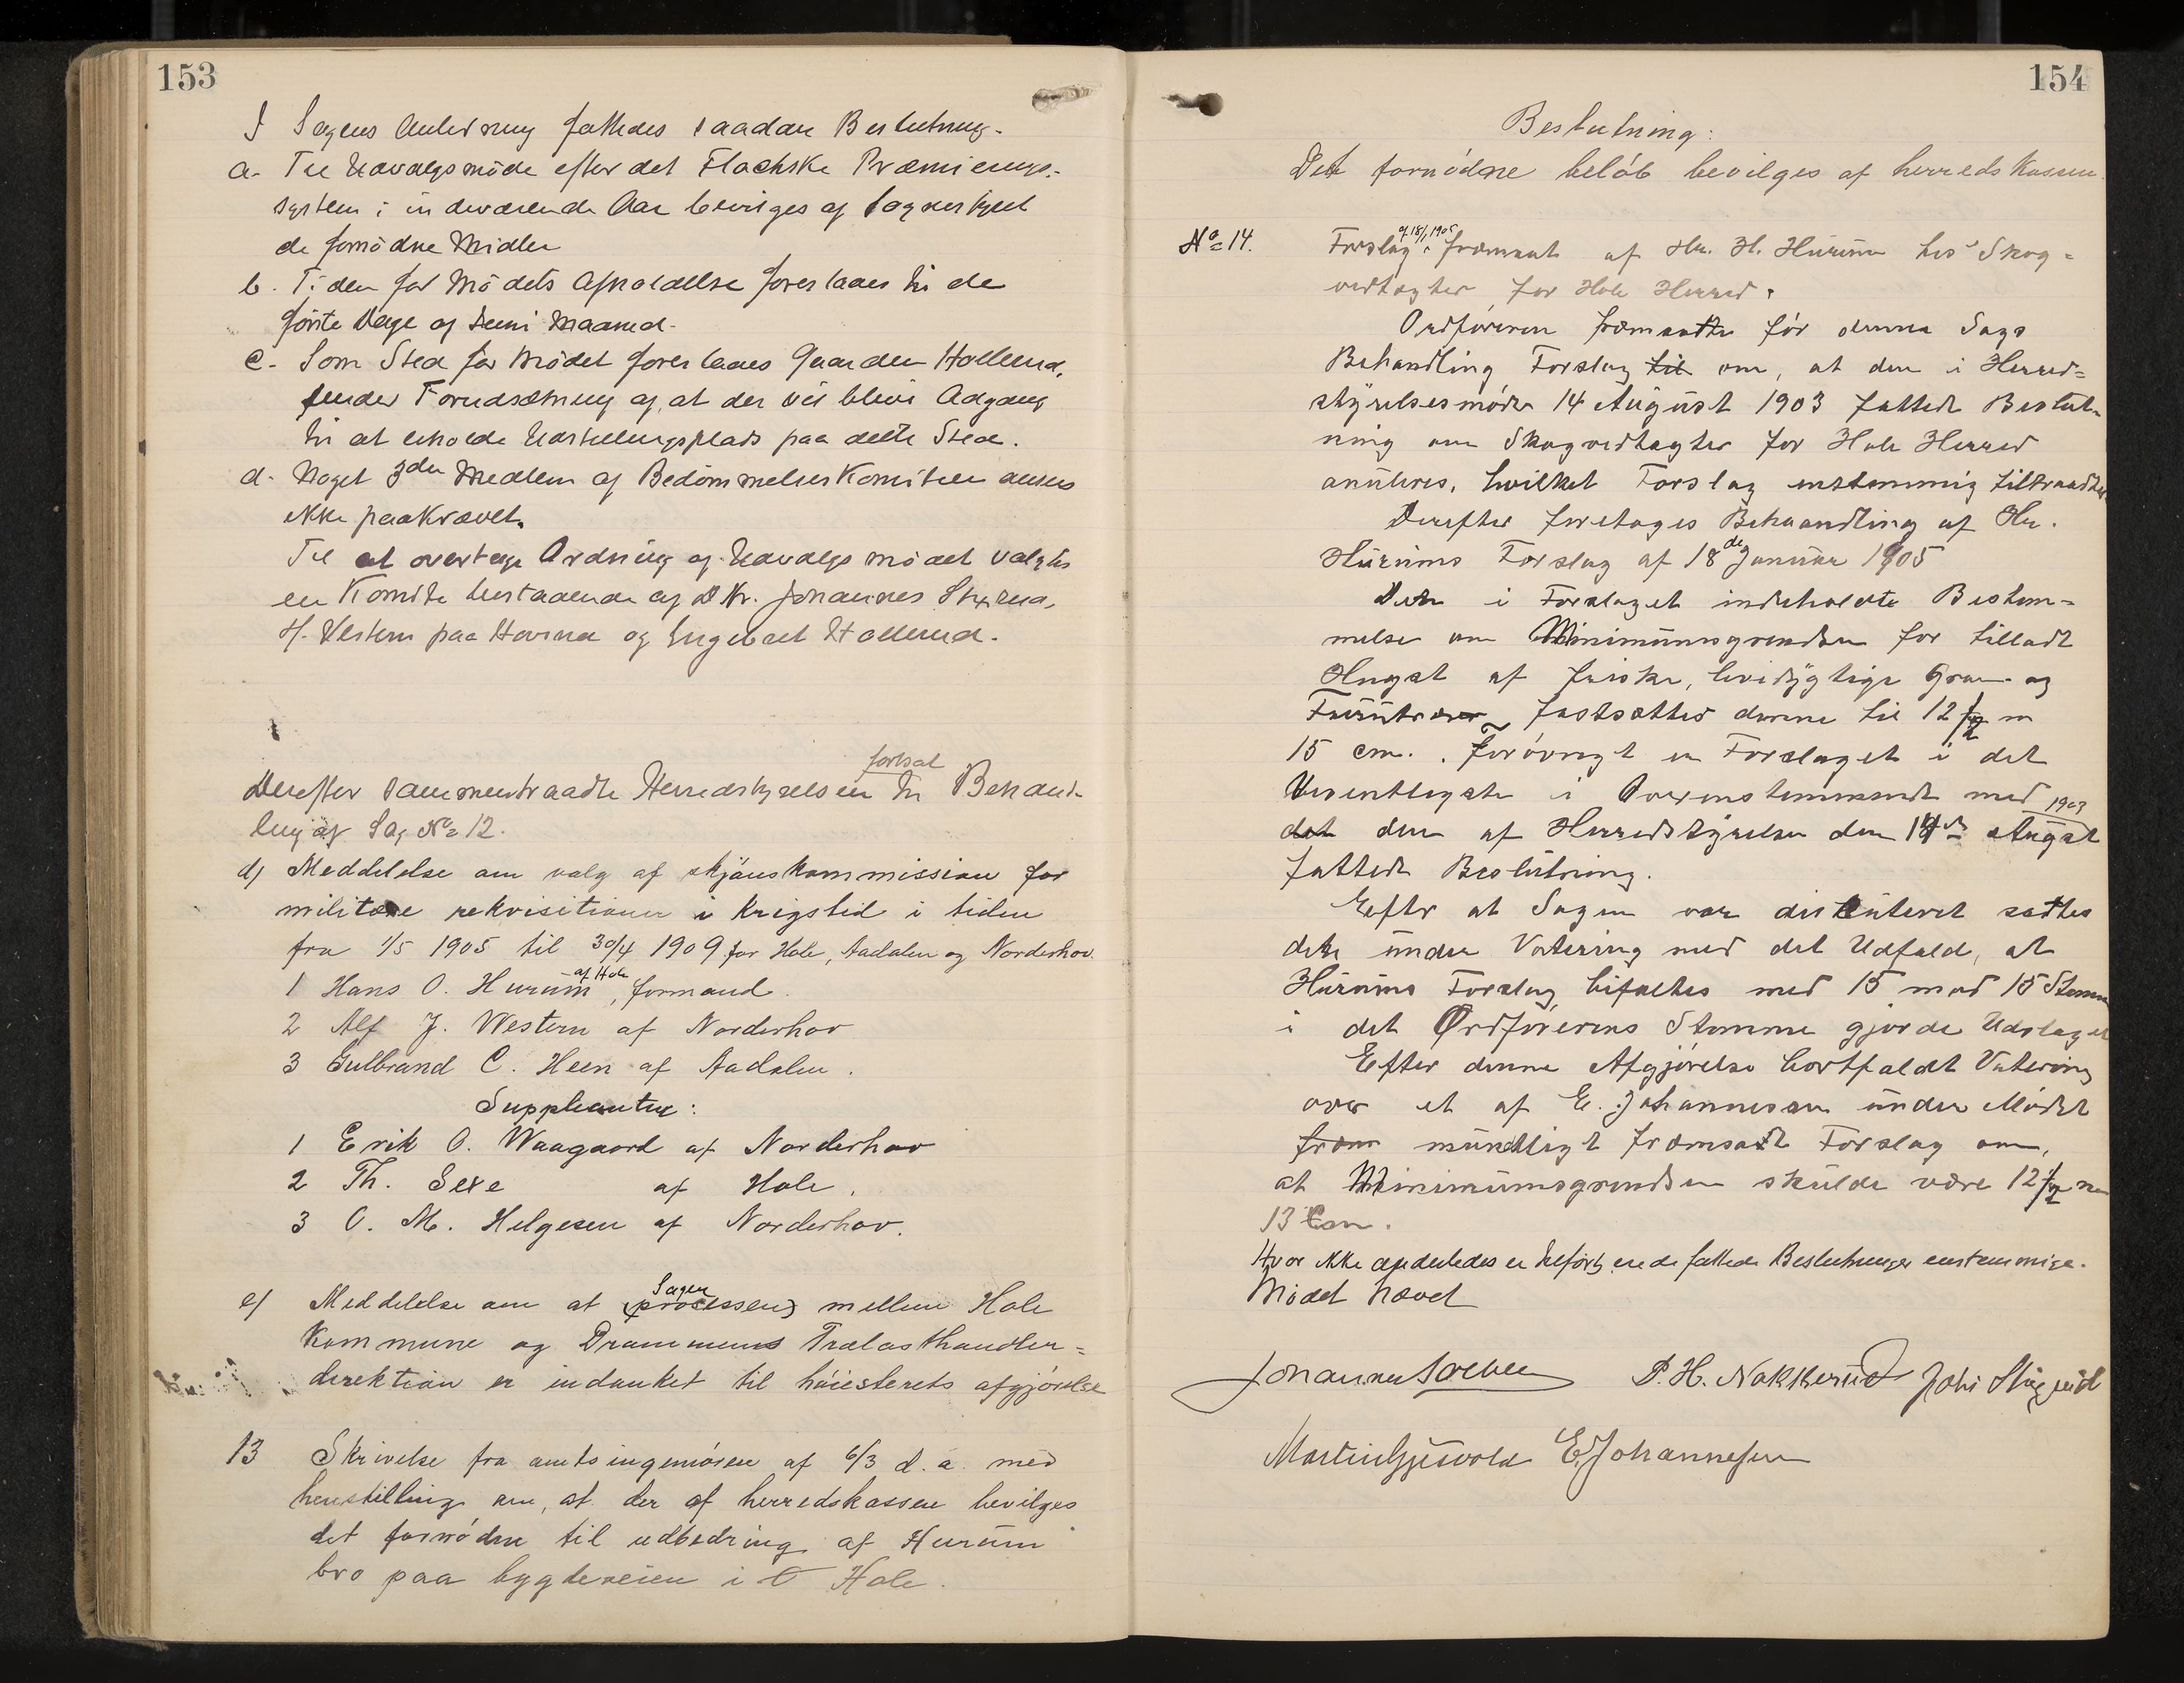 153
I Sagens Anledning fattedes saadan Beslutning.
a. Til Udvalgsmöde efter det Flachske Præmierings-
system i indeværende Aar bevilges af Sognestyret
de fornödne Midler
b. Tiden for Mödets Afholdelse foreslaaes til de
förste Dage af Juni Maaned.
c. Som Sted for Mödet foreslaaes Gaarden Hollerud,
under Forudsætning af, at der vil blive Adgang
til at erholde Udstillingsplads paa dette Sted.
d. Noget 3die Medlem af BedömmelsesKomiteen ansees
ikke paakrævet.
Til at overtage Ordning af Udvalgsmödet valgtes
en Komite bestaaende af Hr. Johannes
H. Western paa Havna og Engebret Hollerud.
fortsat
Derefter sammentraadte Herredstyrelsen til Behand-
ling af Sag No 12.
d) Meddelelse om valg af skjönskommission for
militære rekvisitioner i krigstid i tiden
fra 1/5 1905 til 30/4 1909 for Hole, Aadalen og Norderhov.
1 Hans O. Hurum af Hole, formand.
2 Alf J. Western af Norderhov
3 Gulbrand C. Heen af Aadalen.
Suppleanter:
1 Erik O. Waagaard af Norderhov
2 Th. Sexe af Hole.
3 O. M. Helgesen af Norderhov.
e) Meddelelse om at (processen) Sagen mellem Hole
Kommune og Drammens Trælasthandler=
direktion er indanket til höiesterets afgjörelse
13 Skrivelse fra amtsingeniören af 6/3 d. a. med
henstilling om, at der af herredskassen bevilges
det fornödne til udbedring af Hurum
bro paa bygdeveien i Hole.
154
Beslutning:
Det fornödne belöb bevilges af herredskassen.
No 14. Forslag af 18/1 1905 fremsat af Hr. H. Hurum til Skog=
vedtægter for Hole Herred.
Ordföreren fremsatte för denne Sags
Behandling Forslag til om, at den i Herred=
styrelsesmöde 14 August 1903 fattede Beslut=
ning om Skogvedtægter for Hole Herred
anuleres, hvilket Forslag enstemmig tiltraadtes
Derefter foretoges Behandling af Hr.
Hurums Forslag af 18de Januar 1905
Den i Forslaget indeholdte Bestem=
melse om Minimumsgrendsen for tilladt
Hugst af friske, levedygtige Gran- og
Furutrær fastsattes denne til 12 fod m
15 cm. Foróvrigt er Forslaget i det
Væsentligste i Overensstemmende med
det den af Herredstyrelsen den 14de August 1903
fattede Beslutning.
Efter at Sagen var diskuteret sattes
den under Votering med det Udfald, at
Hurums Forslag bifaltes med 15 mod 15 Stemmer
i det Ordförerens Stemme gjorde Udslaget
Efter denne Afgjörelse bortfaldt Votering
over et af E. Johannessen under Mödet
frem mundtligt fremsadt Forslag om,
at Minimumsgrendsen skulde være 12 fod m
13 Cm.
Hvor ikke anderledes er tilfört, ere de fattede Beslutninger enstemmige.
Mödet hævet
P. H. Nakkerud
E. Johannesen